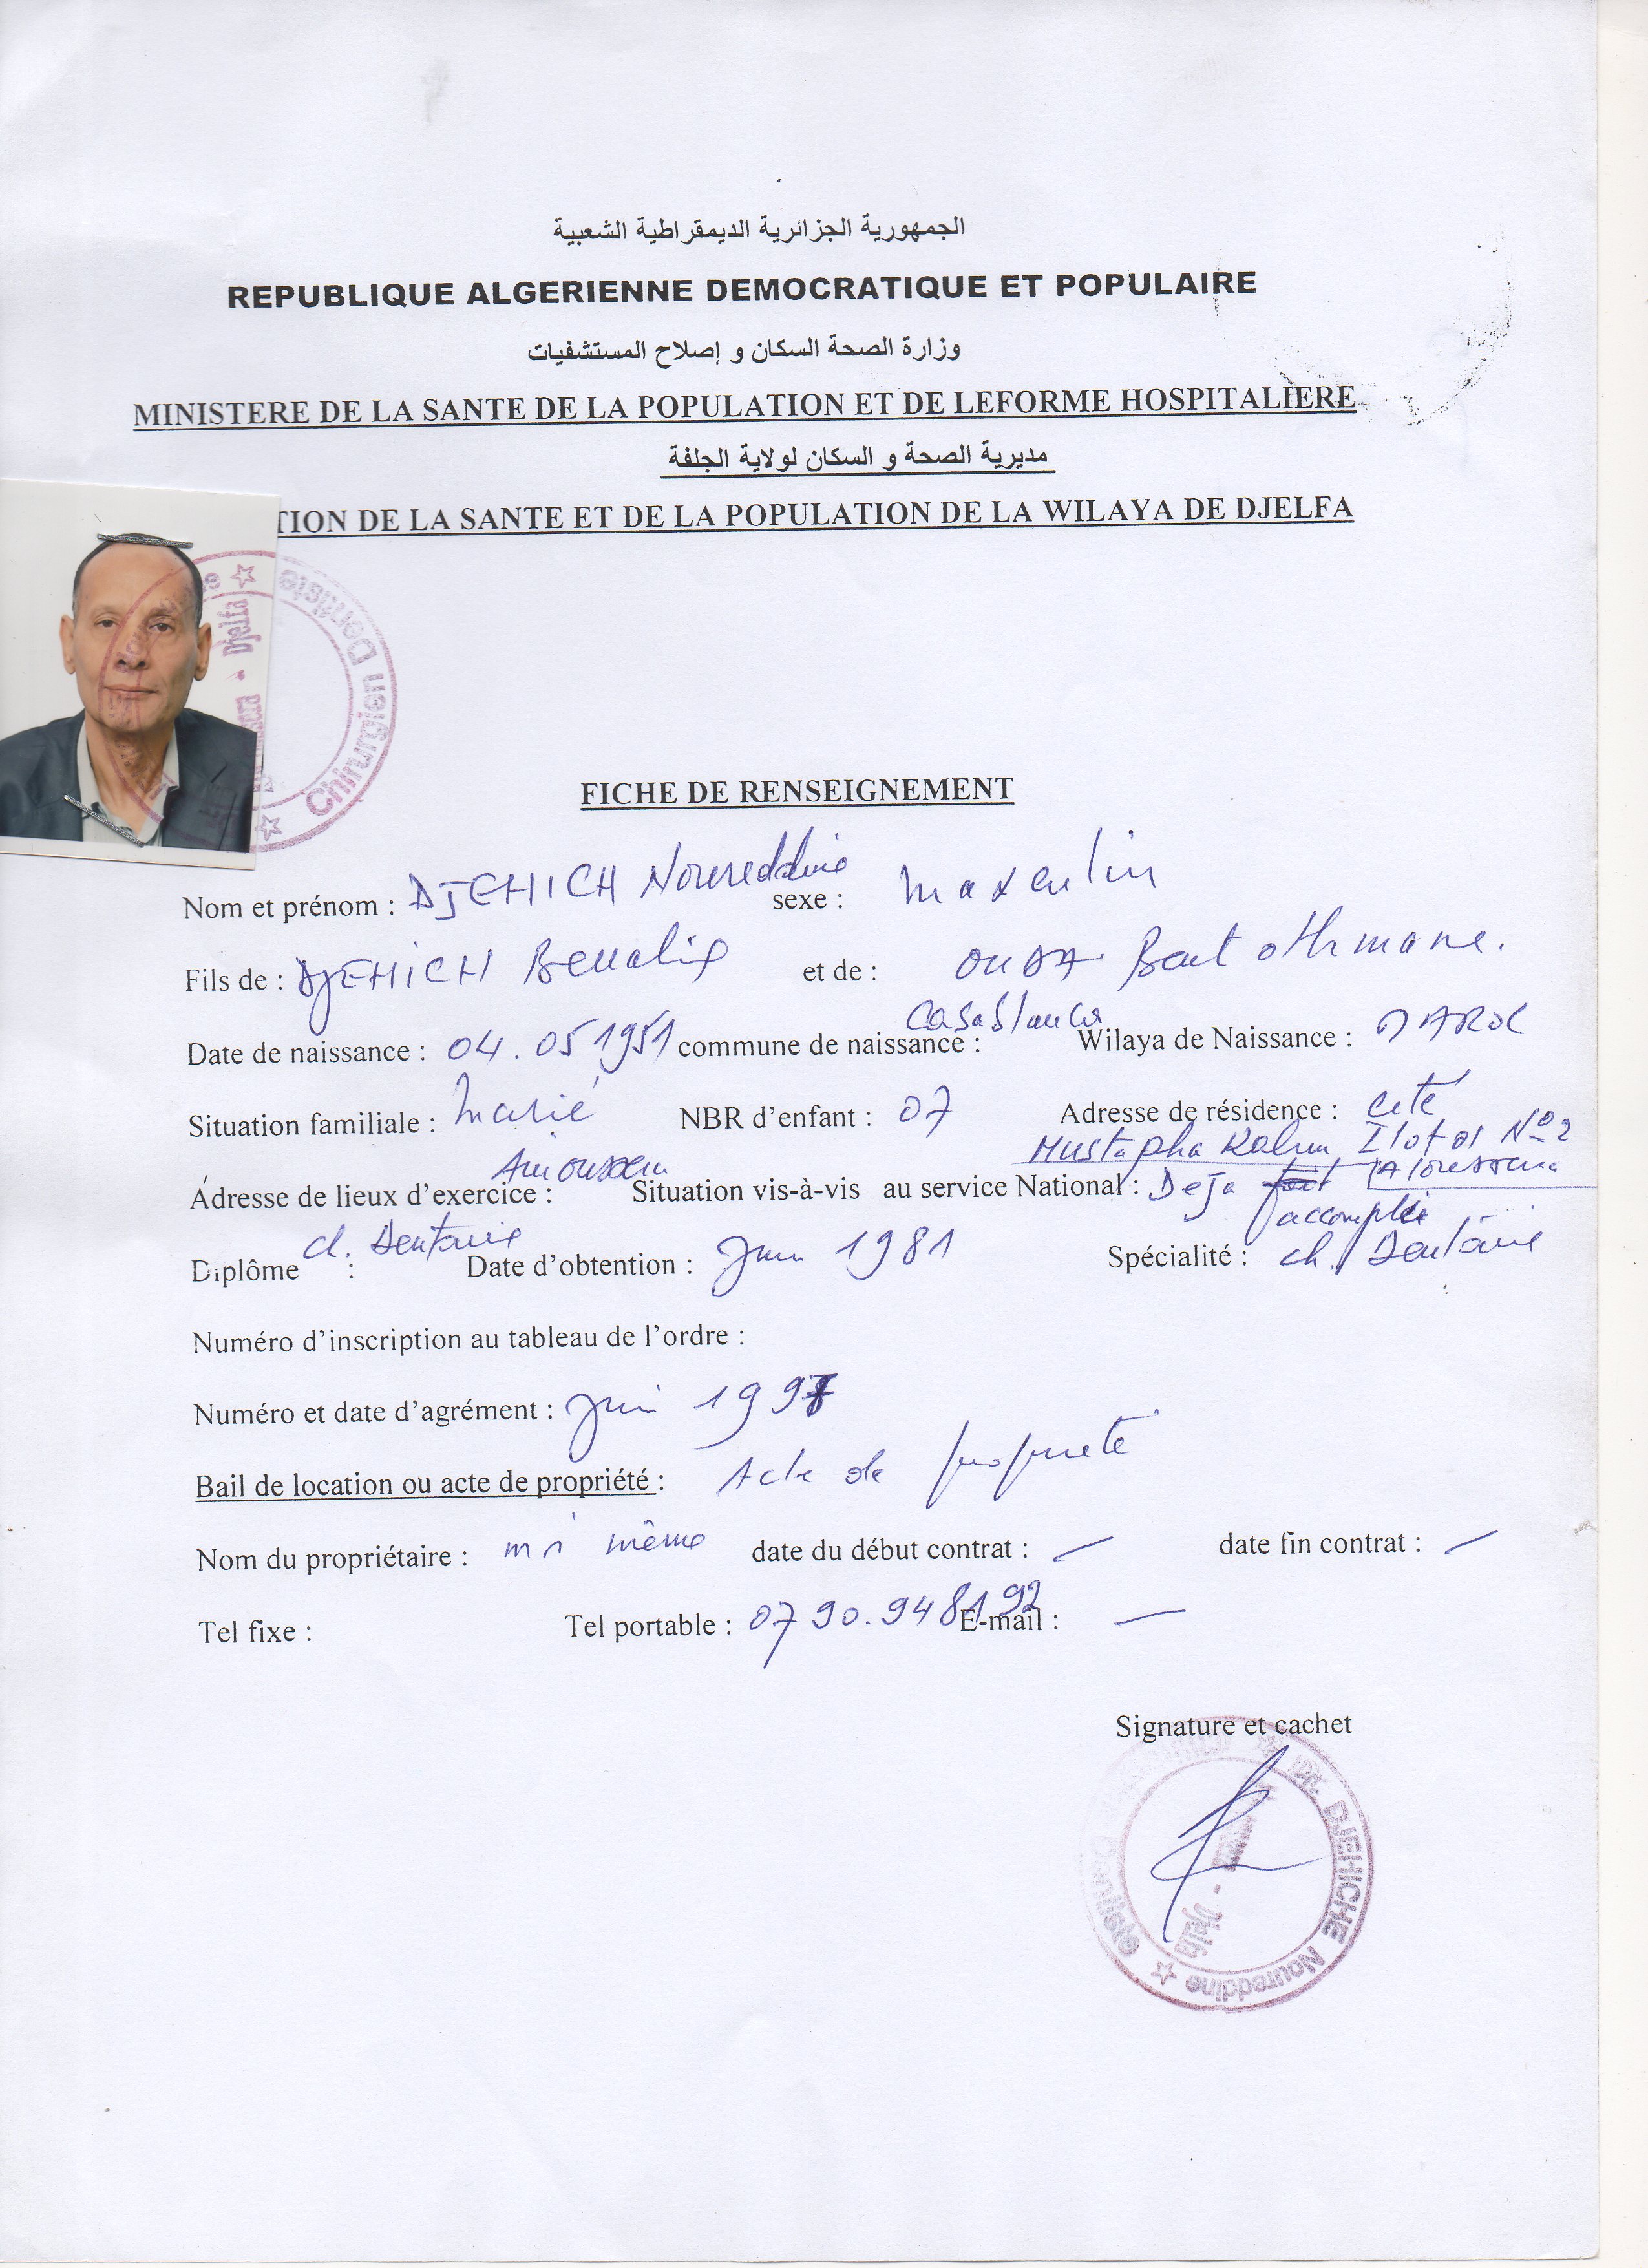 الجمهورية الجزائرية الديمقراطية الشعبية
REPUBLIQUE ALGERIENNE DEMOCRATIQUE ET POPULAIRE
وزارة الصحة السكان و إصلاح المستشفيات
MINISTERE DE LA SANTE DE LA POPULATION ET DE LEFORME HOSPITALIERE
مديرية الصحة و السكان لولاية الجلفة
TION DE LA SANTE ET DE LA POPULATION DE LA WILAYA DE DJELFA
Chirurgien Dentiste
Djelfa
FICHE DE RENSEIGNEMENT
Nom et prénom : DJEHICH Noureddine sexe : masculin
Fils de : DJEHICH Benalia et de : OUDA Bent othmane.
Date de naissance : 04.05 1951 commune de naissance : Casablanca Wilaya de Naissance : MAROC
Situation familiale : marié NBR d'enfant : 07 Adresse de résidence : cité
Mustapha Ilot 01 N°2
Adresse de lieux d'exercice : Situation vis-à-vis au service National : Deja accompli
Diplôme : ch. Dentaire Date d'obtention : Juin 1981 Spécialité : ch. Dentaire
Numéro d'inscription au tableau de l'ordre :
Numéro et date d'agrément : Juin 1997
Bail de location ou acte de propriété : Acte de propriété
Nom du propriétaire : moi même date du début contrat : — date fin contrat : —
Tel fixe : Tel portable : 0790.948192 E-mail : —
Signature et cachet
Dr. DJEHICHE Noureddine
Dentiste
Djelfa